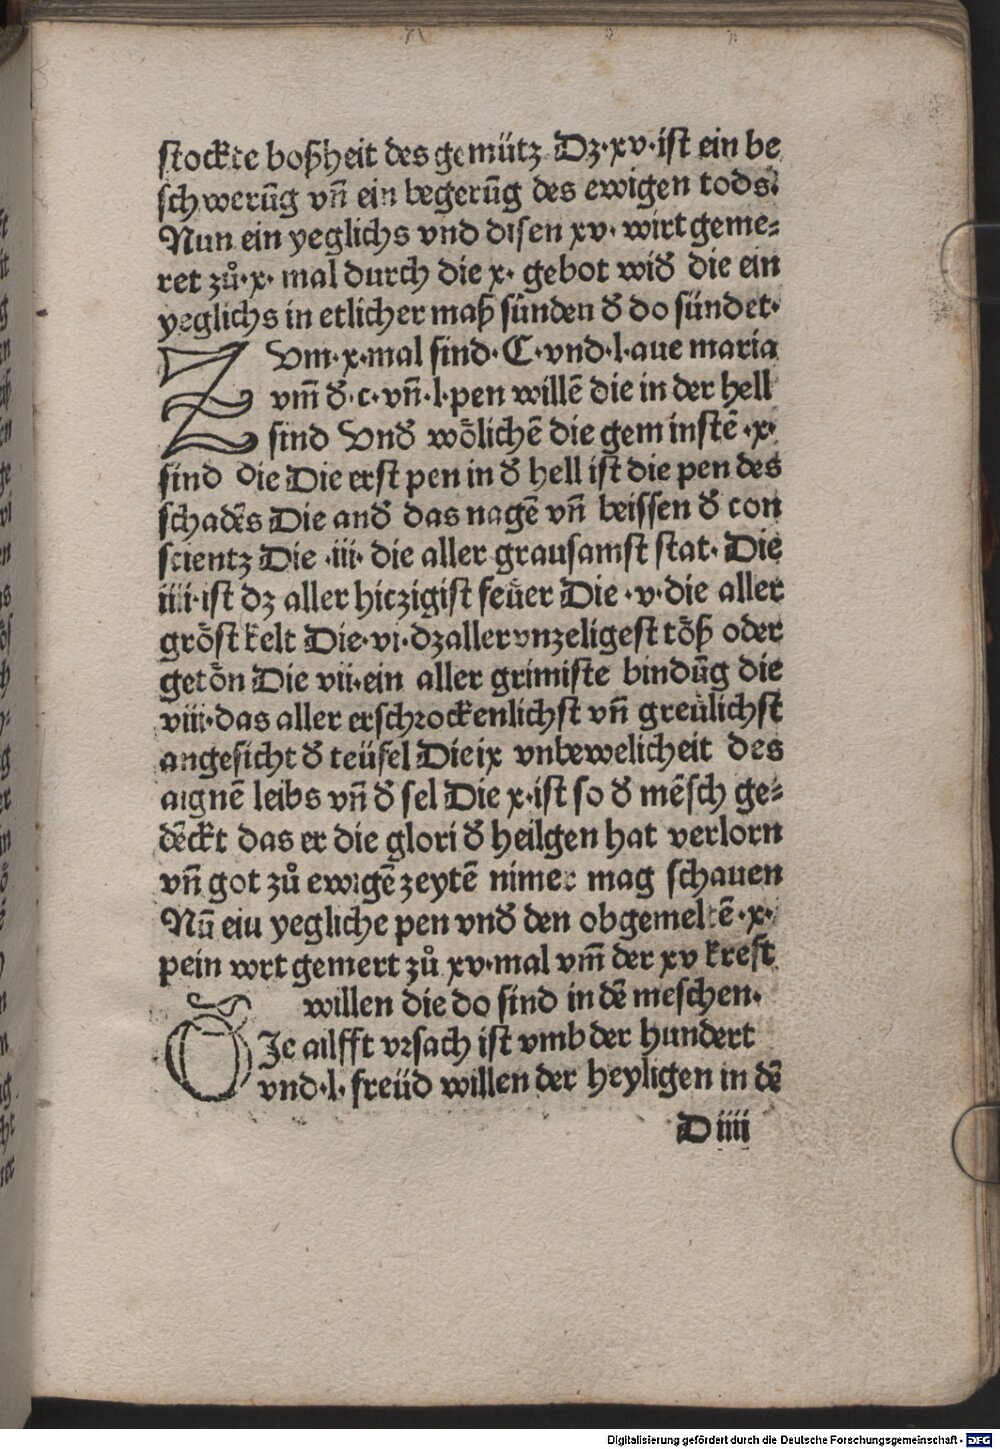 stockte boßheit des gemütz Dz·xv·ist ein be
schwerūg vn̄ ein begerūg des ewigen tods.
Nun ein yeglichs vnd disen xv· wirt geme⸗
ret zů·x· mal durch die x· gebot wid̕ die ein
yeglichs in etlicher maß sünden d̕ do sündet·
Zvm·x·mal sind·C·vnd·l·aue maria
vm̄ d̕·c·vn̄·l·pen willē die in der hell
sind Vnd̕ wölichē die geminstē·x·
sind die Die erst pen in d̕ hell ist die pen des
schadēs Die and̕ das nagē vn̄ beissen d̕ con
scientz Die ·iii· die aller grausamst stat· Die
iiii·ist dz aller hitzigist feüer Die ·v·die aller
gröst kelt Die·vi·dzallervnzeligest töß oder
getön Die vii·ein aller grimiste bindūg die
viii·das aller erschrockenlichst vn̄ greülichst
angesicht d̕ teüfel Die ix vnbewelicheit des
aignē leibs vn̄ d̕ sel Die x·ist so d̕ mēsch ge⸗
dēckt das er die glori d̕ heilgen hat verlorn
vn̄ got zů ewigē zeytē nimer mag schauen
Nū eiu yegliche pen vnd̕ den obgemeltē·x·
pein wrt gemert zů xv·mal vm̄ der xv krest
willen die do sind in dē meschen·
DJe ailfft vrsach ist vmb der hundert
vnd·l·freüd willen der heyligen in dē
D iiii
Digitalisierung gefördert durch die Deutsche Forschungsgemeinschaft - DFG